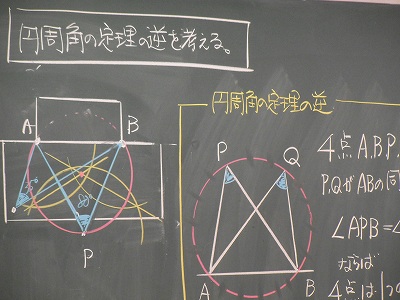 円周角の定理の逆を考える。
円周角の定理の逆
A
B
P
P
Q
A
B
4点A.B.P.
P.QがABの同
∠APB=∠
ならば
4点は1つ